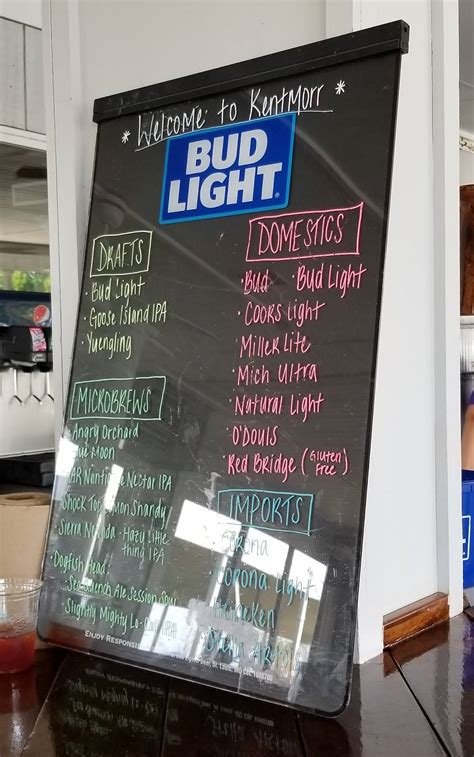 * Welcome to Kentmorr *
BUD
LIGHT
DRAFTS
• Bud Light
• Goose Island IPA
• Yuengling
MICROBREWS
• Angry Orchard
Blue Moon
Nectar IPA
Shock Top Lemon Shandy
Sierra Nevada - Hazy Little
thing IPA
• Dogfish Head:
Ale Session Sour
Slightly Mighty Lo-Cal IPA
DOMESTICS
• Bud • Bud Light
• Coors Light
Miller Lite
• Mich Ultra
• Natural Light
O'Douls
• Red Bridge (Gluten
Free)
IMPORTS
Corona
Corona Light
Heineken
Stella Artois
ENJOY RESPONSIBLY